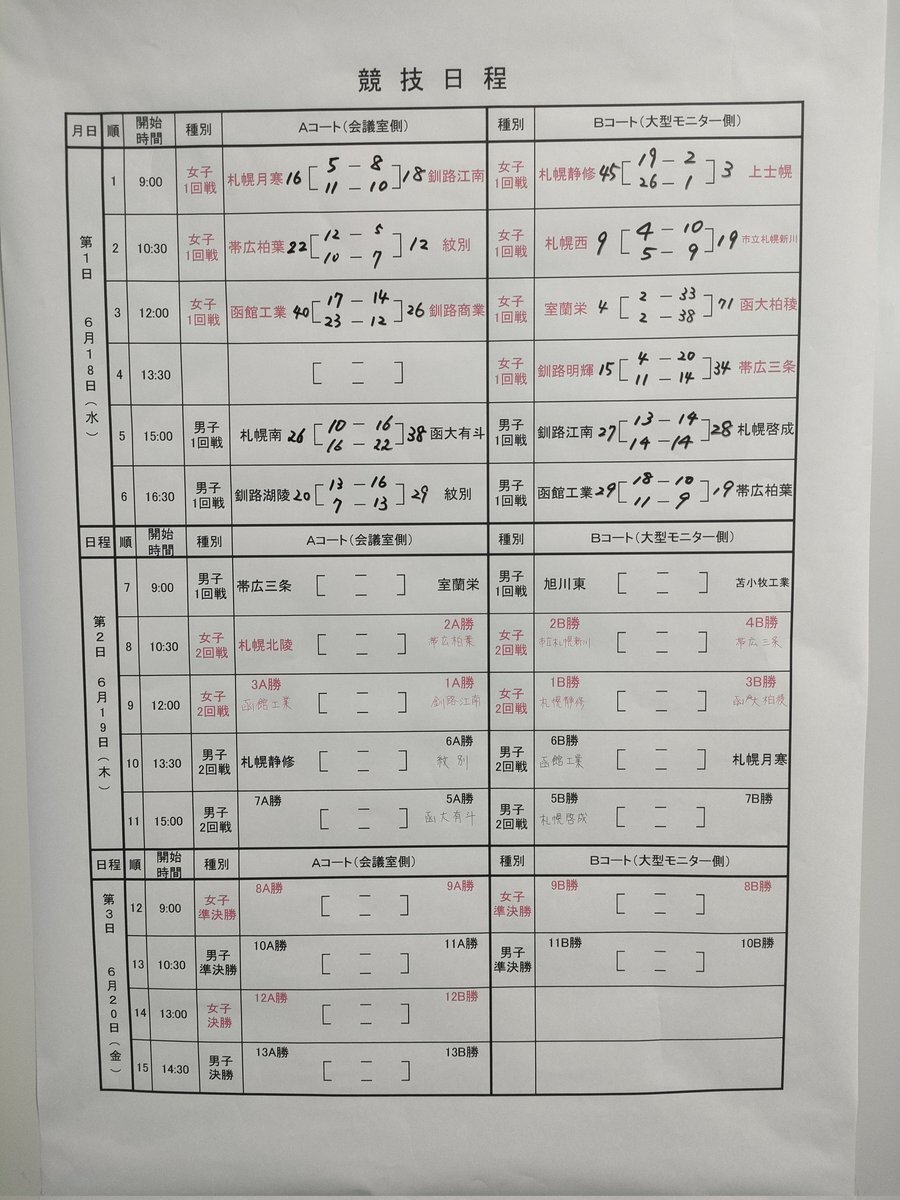 競技日程
月日 順 開始時間 種別 Aコート(会議室側) 種別 Bコート(大型モニター側)
第1日 6月18日(水)
1 9:00 女子1回戦 札幌月寒 16 [5 - 8 / 11 - 10] 18 釧路江南 女子1回戦 札幌静修 45 [19 - 2 / 26 - 1] 3 上士幌
2 10:30 女子1回戦 帯広柏葉 22 [12 - 5 / 10 - 7] 12 紋別 女子1回戦 札幌西 9 [4 - 10 / 5 - 9] 19 市立札幌新川
3 12:00 女子1回戦 函館工業 40 [17 - 14 / 23 - 12] 26 釧路商業 女子1回戦 室蘭栄 4 [2 - 33 / 2 - 38] 71 函大柏稜
4 13:30 [ - - ] 女子1回戦 釧路明輝 15 [4 - 20 / 11 - 14] 34 帯広三条
5 15:00 男子1回戦 札幌南 26 [10 - 16 / 16 - 22] 38 函大有斗 男子1回戦 釧路江南 27 [13 - 14 / 14 - 14] 28 札幌啓成
6 16:30 男子1回戦 釧路湖陵 20 [13 - 16 / 7 - 13] 29 紋別 男子1回戦 函館工業 29 [18 - 10 / 11 - 9] 19 帯広柏葉
日程 順 開始時間 種別 Aコート(会議室側) 種別 Bコート(大型モニター側)
第2日 6月19日(木)
7 9:00 男子1回戦 帯広三条 [ - - ] 室蘭栄 男子1回戦 旭川東 [ - - ] 苫小牧工業
8 10:30 女子2回戦 札幌北陵 [ - - ] 2A勝 帯広柏葉 女子2回戦 2B勝 市立札幌新川 [ - - ] 4B勝 帯広三条
9 12:00 女子2回戦 3A勝 函館工業 [ - - ] 1A勝 釧路江南 女子2回戦 1B勝 札幌静修 [ - - ] 3B勝 函大柏稜
10 13:30 男子2回戦 札幌静修 [ - - ] 6A勝 紋別 男子2回戦 6B勝 函館工業 [ - - ] 札幌月寒
11 15:00 男子2回戦 7A勝 [ - - ] 5A勝 函大有斗 男子2回戦 5B勝 札幌啓成 [ - - ] 7B勝
日程 順 開始時間 種別 Aコート(会議室側) 種別 Bコート(大型モニター側)
第3日 6月20日(金)
12 9:00 女子準決勝 8A勝 [ - - ] 9A勝 女子準決勝 9B勝 [ - - ] 8B勝
13 10:30 男子準決勝 10A勝 [ - - ] 11A勝 男子準決勝 11B勝 [ - - ] 10B勝
14 13:00 女子決勝 12A勝 [ - - ] 12B勝
15 14:30 男子決勝 13A勝 [ - - ] 13B勝